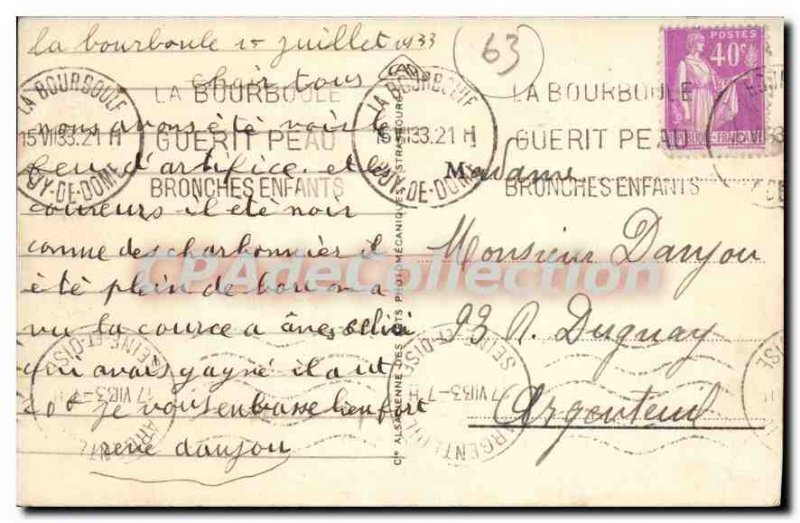 la bourboule 15 juillet 1933
63
POSTES
40c
REPUBLIQUE FRANÇAISE
chair tous
LA BOURBOULE
GUERIT PEAU
BRONCHES ENFANTS
LA BOURBOULE
15 VII 33. 21 H
PUY-DE-DOME
LA BOURBOULE
15 VII 33. 21 H
PUY-DE-DOME
LA BOURBOULE
GUERIT PEAU
BRONCHES ENFANTS
nous avons été voir le
feu d'artifice. et les
coureurs il été noir
comme des charbonnier il
été plein de boue on a
vu la cource a ânes celui
qui avais gagné il a ut
20f je vous enbrasse bien fort
rené danjou
Cie ALSACIENNE DES ARTS PHOTOMÉCANIQUES STRASBOURG
CAP
Madame
Monsieur Danjou
93 R. Duguay
Argenteuil
ARGENTEUIL
SEINE-ET-OISE
17 VII 33-7 H
ARGENTEUIL
SEINE-ET-OISE
17 VII 33-7 H
CPAdeCollection